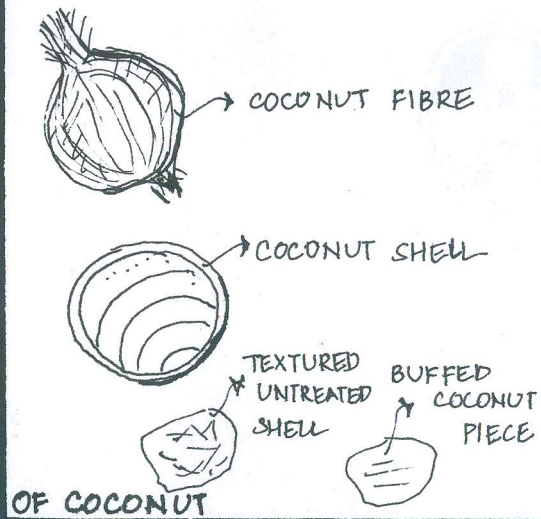 COCONUT FIBRE
COCONUT SHELL
TEXTURED
UNTREATED
SHELL
BUFFED
COCONUT
PIECE
OF COCONUT